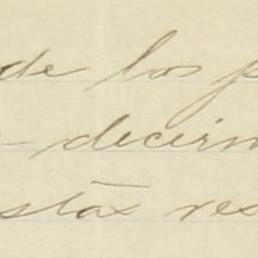 de los p
decirm
stas res